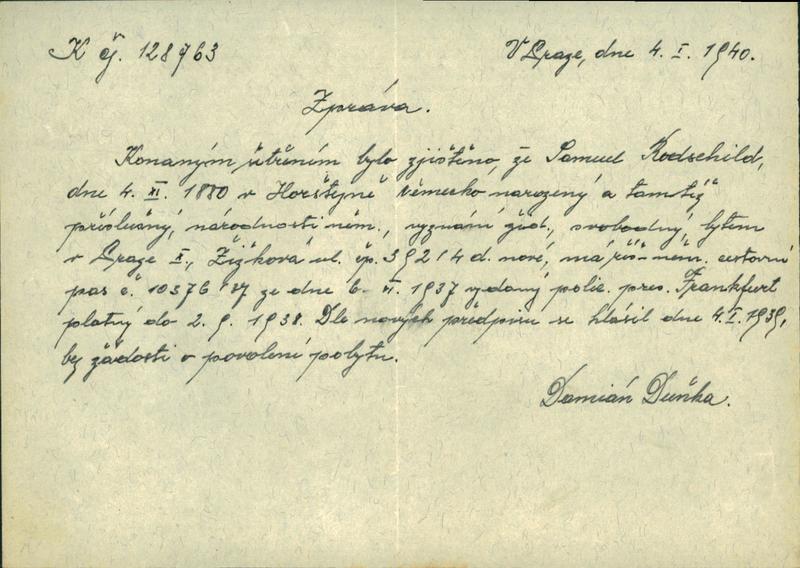 K čj. 128763
V Praze, dne 4. I. 1940.
Zpráva.
Konaným šetřením bylo zjištěno, že Samuel Rodschild,
dne 4. XI. 1880 v Horštejně Německo narozený a tamtéž
příslušný, národnosti něm., vyznání žid., svobodný, bytem
v Praze X., Žižkova ul. čp. 392/4 d. nové, má říš-něm. cestovní
pas č. 10376/37 ze dne 6. XI. 1937 vydaný polic. pres. Frankfurt
platný do 2. 9. 1938. Dle nových předpisu se hlásil dne 4. I. 1939,
bez žádosti o povolení pobytu.
Damián Duňka.